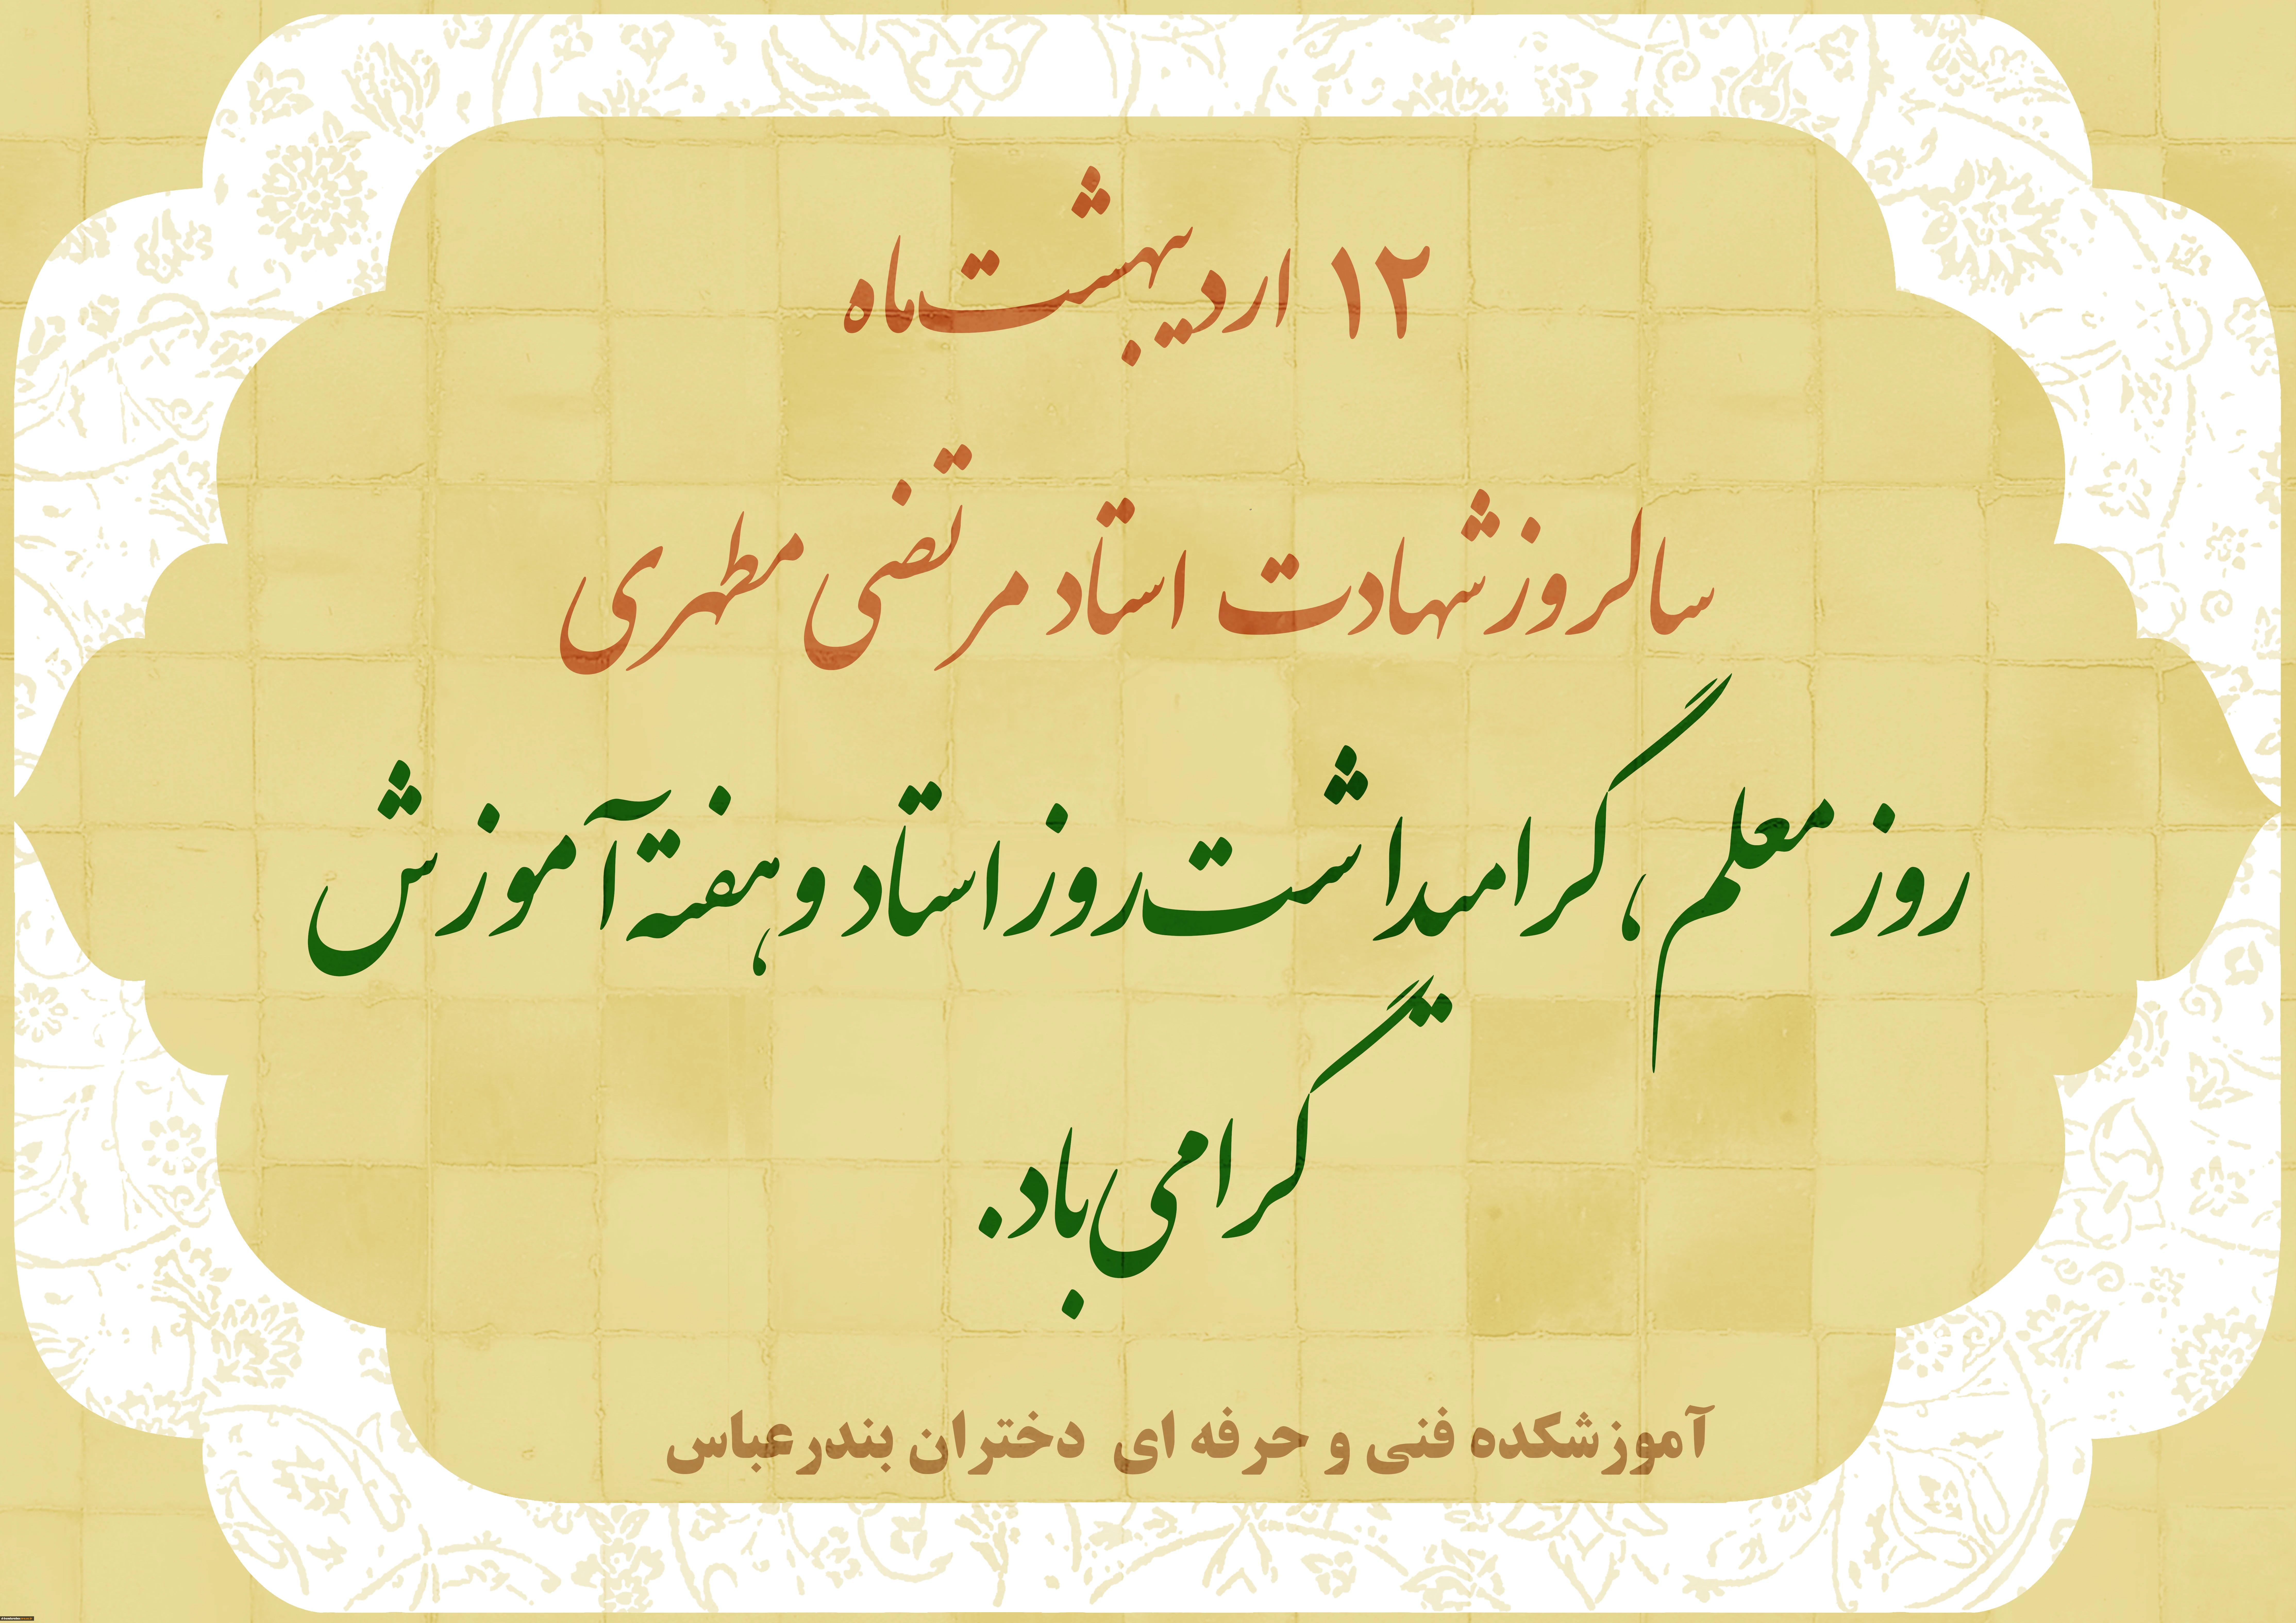 ۱۲ اردیبهشت‌ماه
سالروز شهادت استاد مرتضی مطهری
روز معلم، گرامیداشت روز استاد و هفتهٔ آموزش
گرامی باد.
آموزشکده فنی و حرفه ای دختران بندرعباس